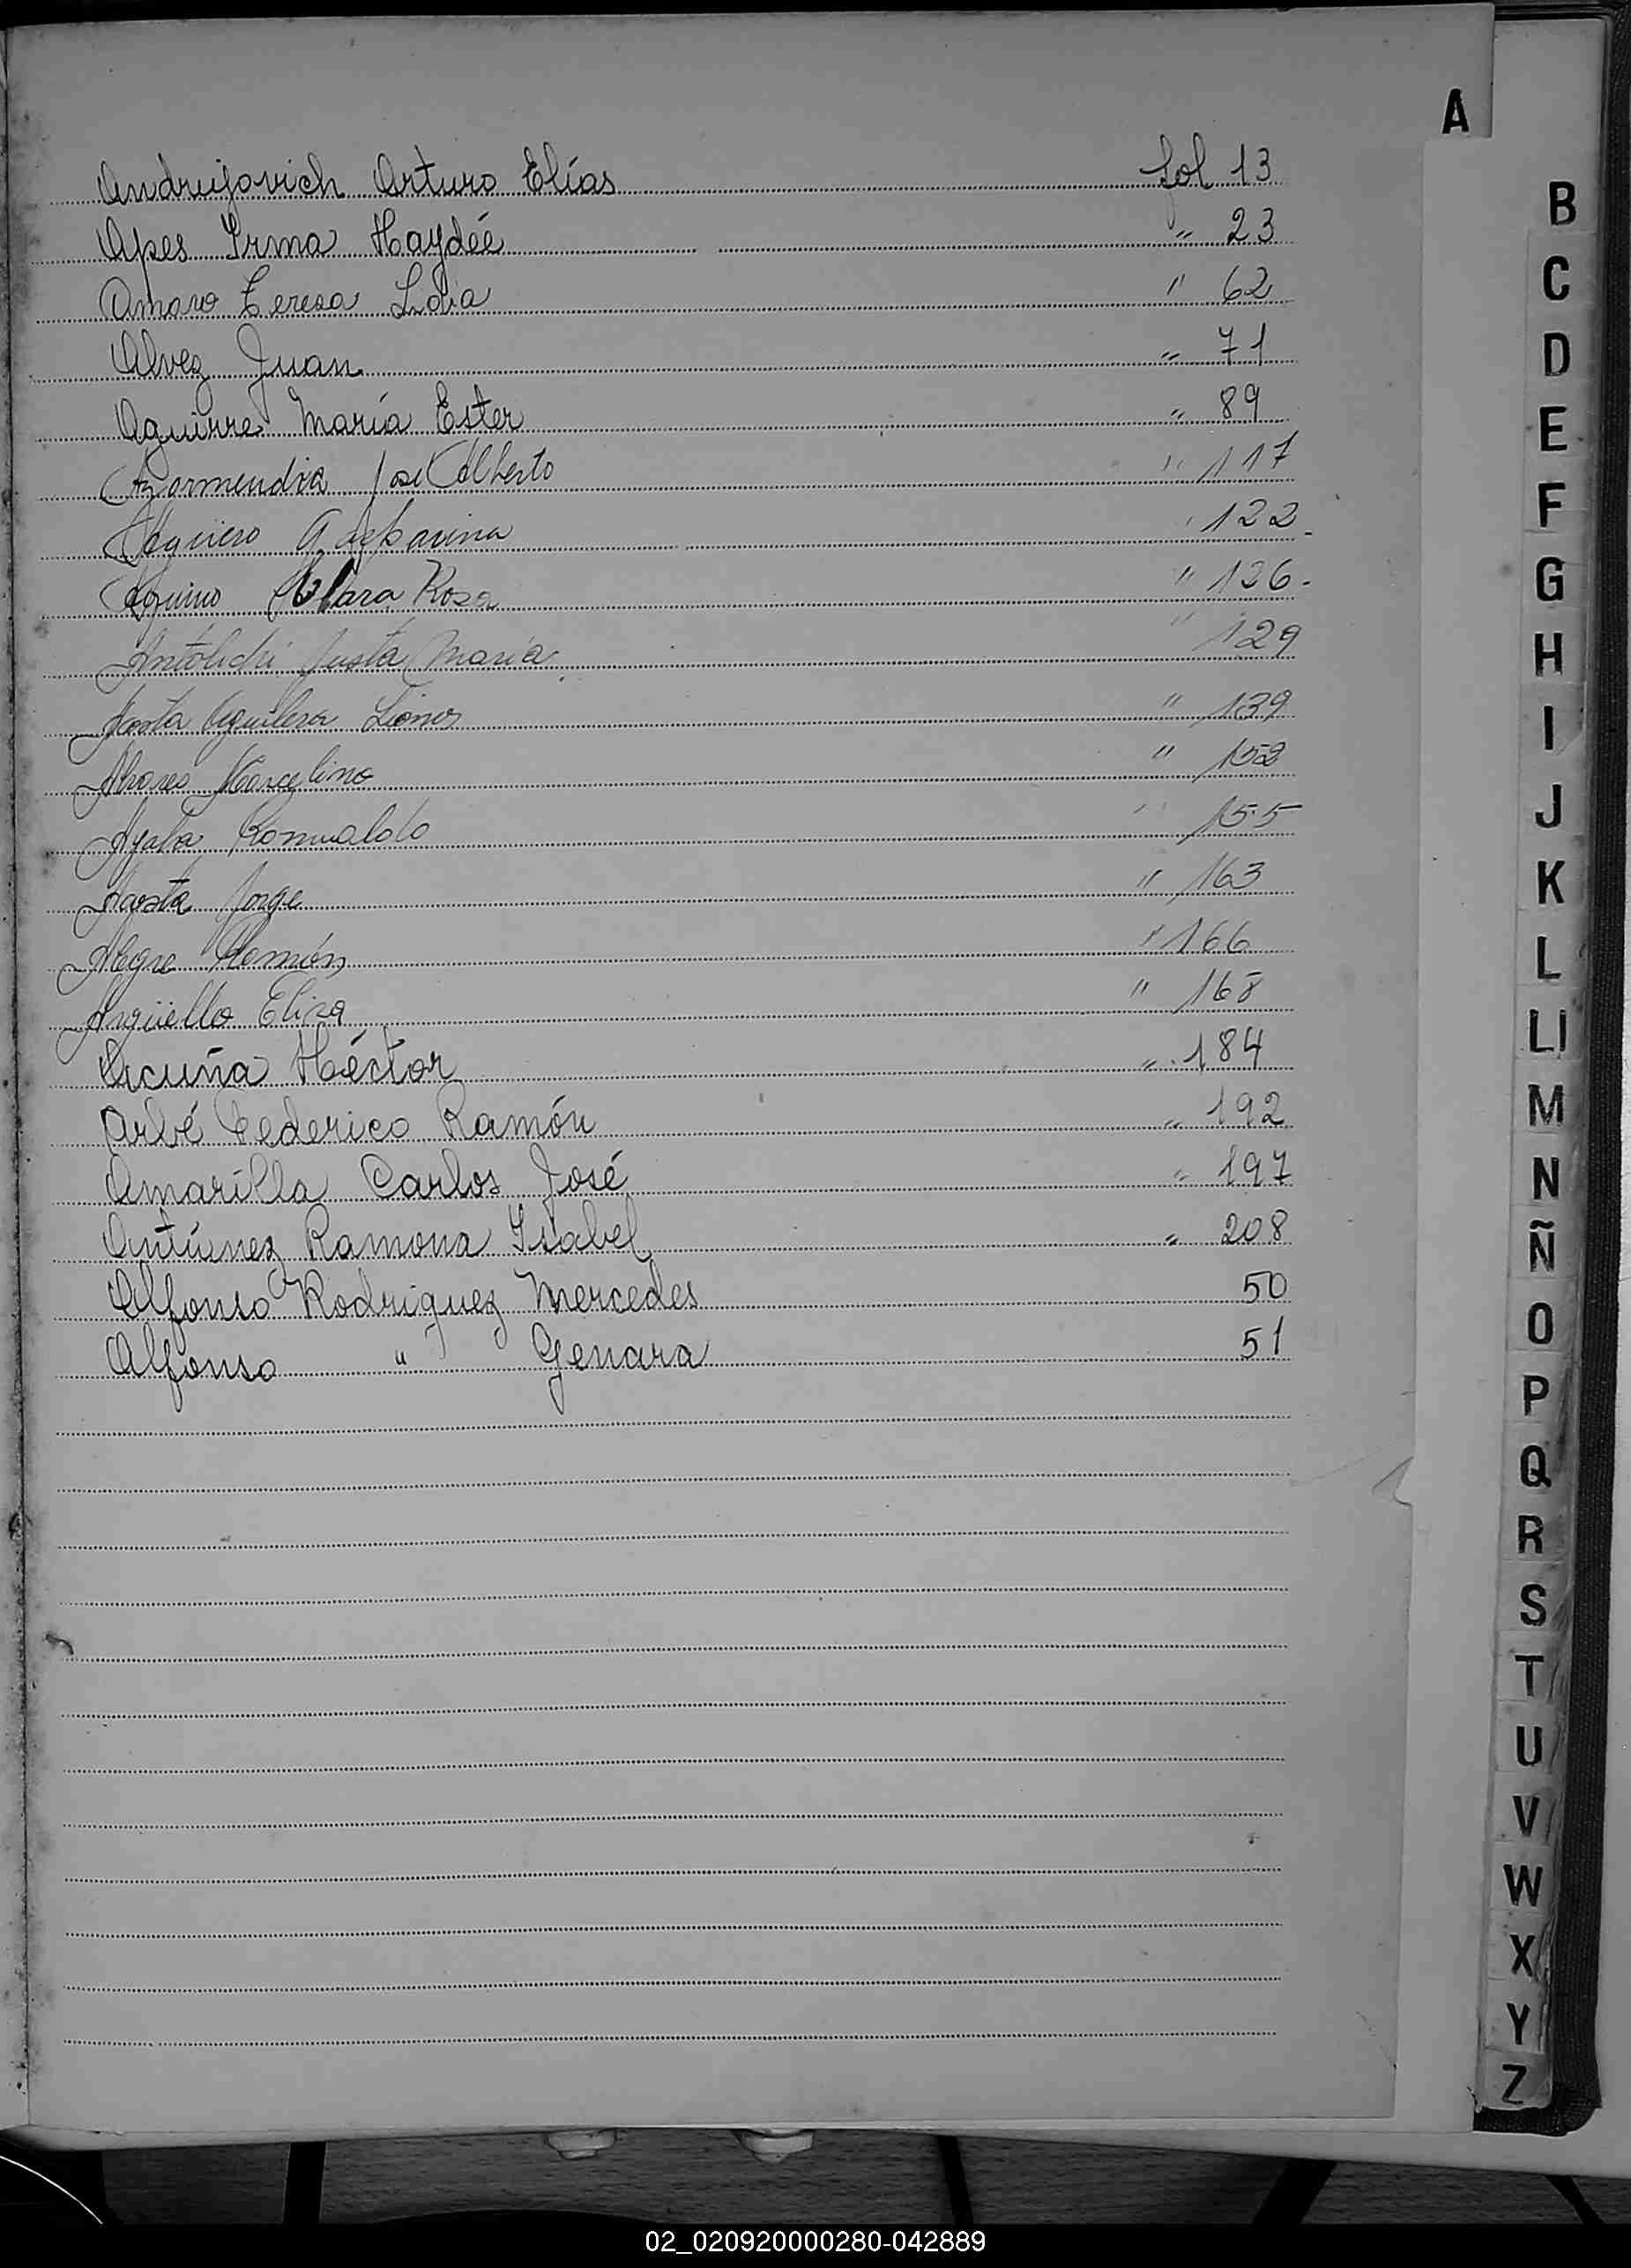 A
Andrujovich Arturo Elías fol 13
Apes Irma Haydée " 23
Amaro Teresa Lidia " 62
Alvez Juan " 71
Aguirre María Ester " 89
Azormendia José Alberto " 117
Agüero " 122
Aquino Clara Rosa " 126
Justa María " 129
Acosta Aguilera " 139
Alvares Marcelino " 152
Ayala Romualdo " 155
Acosta Jorge " 163
Alegre Ramón " 166
Argüello Elisa " 168
Acuña Héctor " 184
Arbé Federico Ramón " 192
Amarilla Carlos José " 197
Antúnez Ramona Isabel " 208
Alfonso Rodriguez Mercedes 50
Alfonso " Genara 51
B
C
D
E
F
G
H
I
J
K
L
Ll
M
N
Ñ
O
P
Q
R
S
T
U
V
W
X
Y
Z
02_020920000280-042889